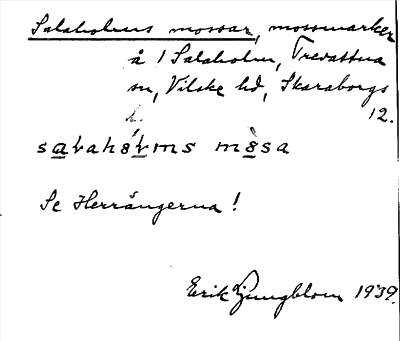 Salaholms mossar, mossmarker
å 1 Salaholm, Trevattna
sn, Vilske hd, Skaraborgs
l. 12.
Se Herrängerna!
Erik Ljungblom 1939.